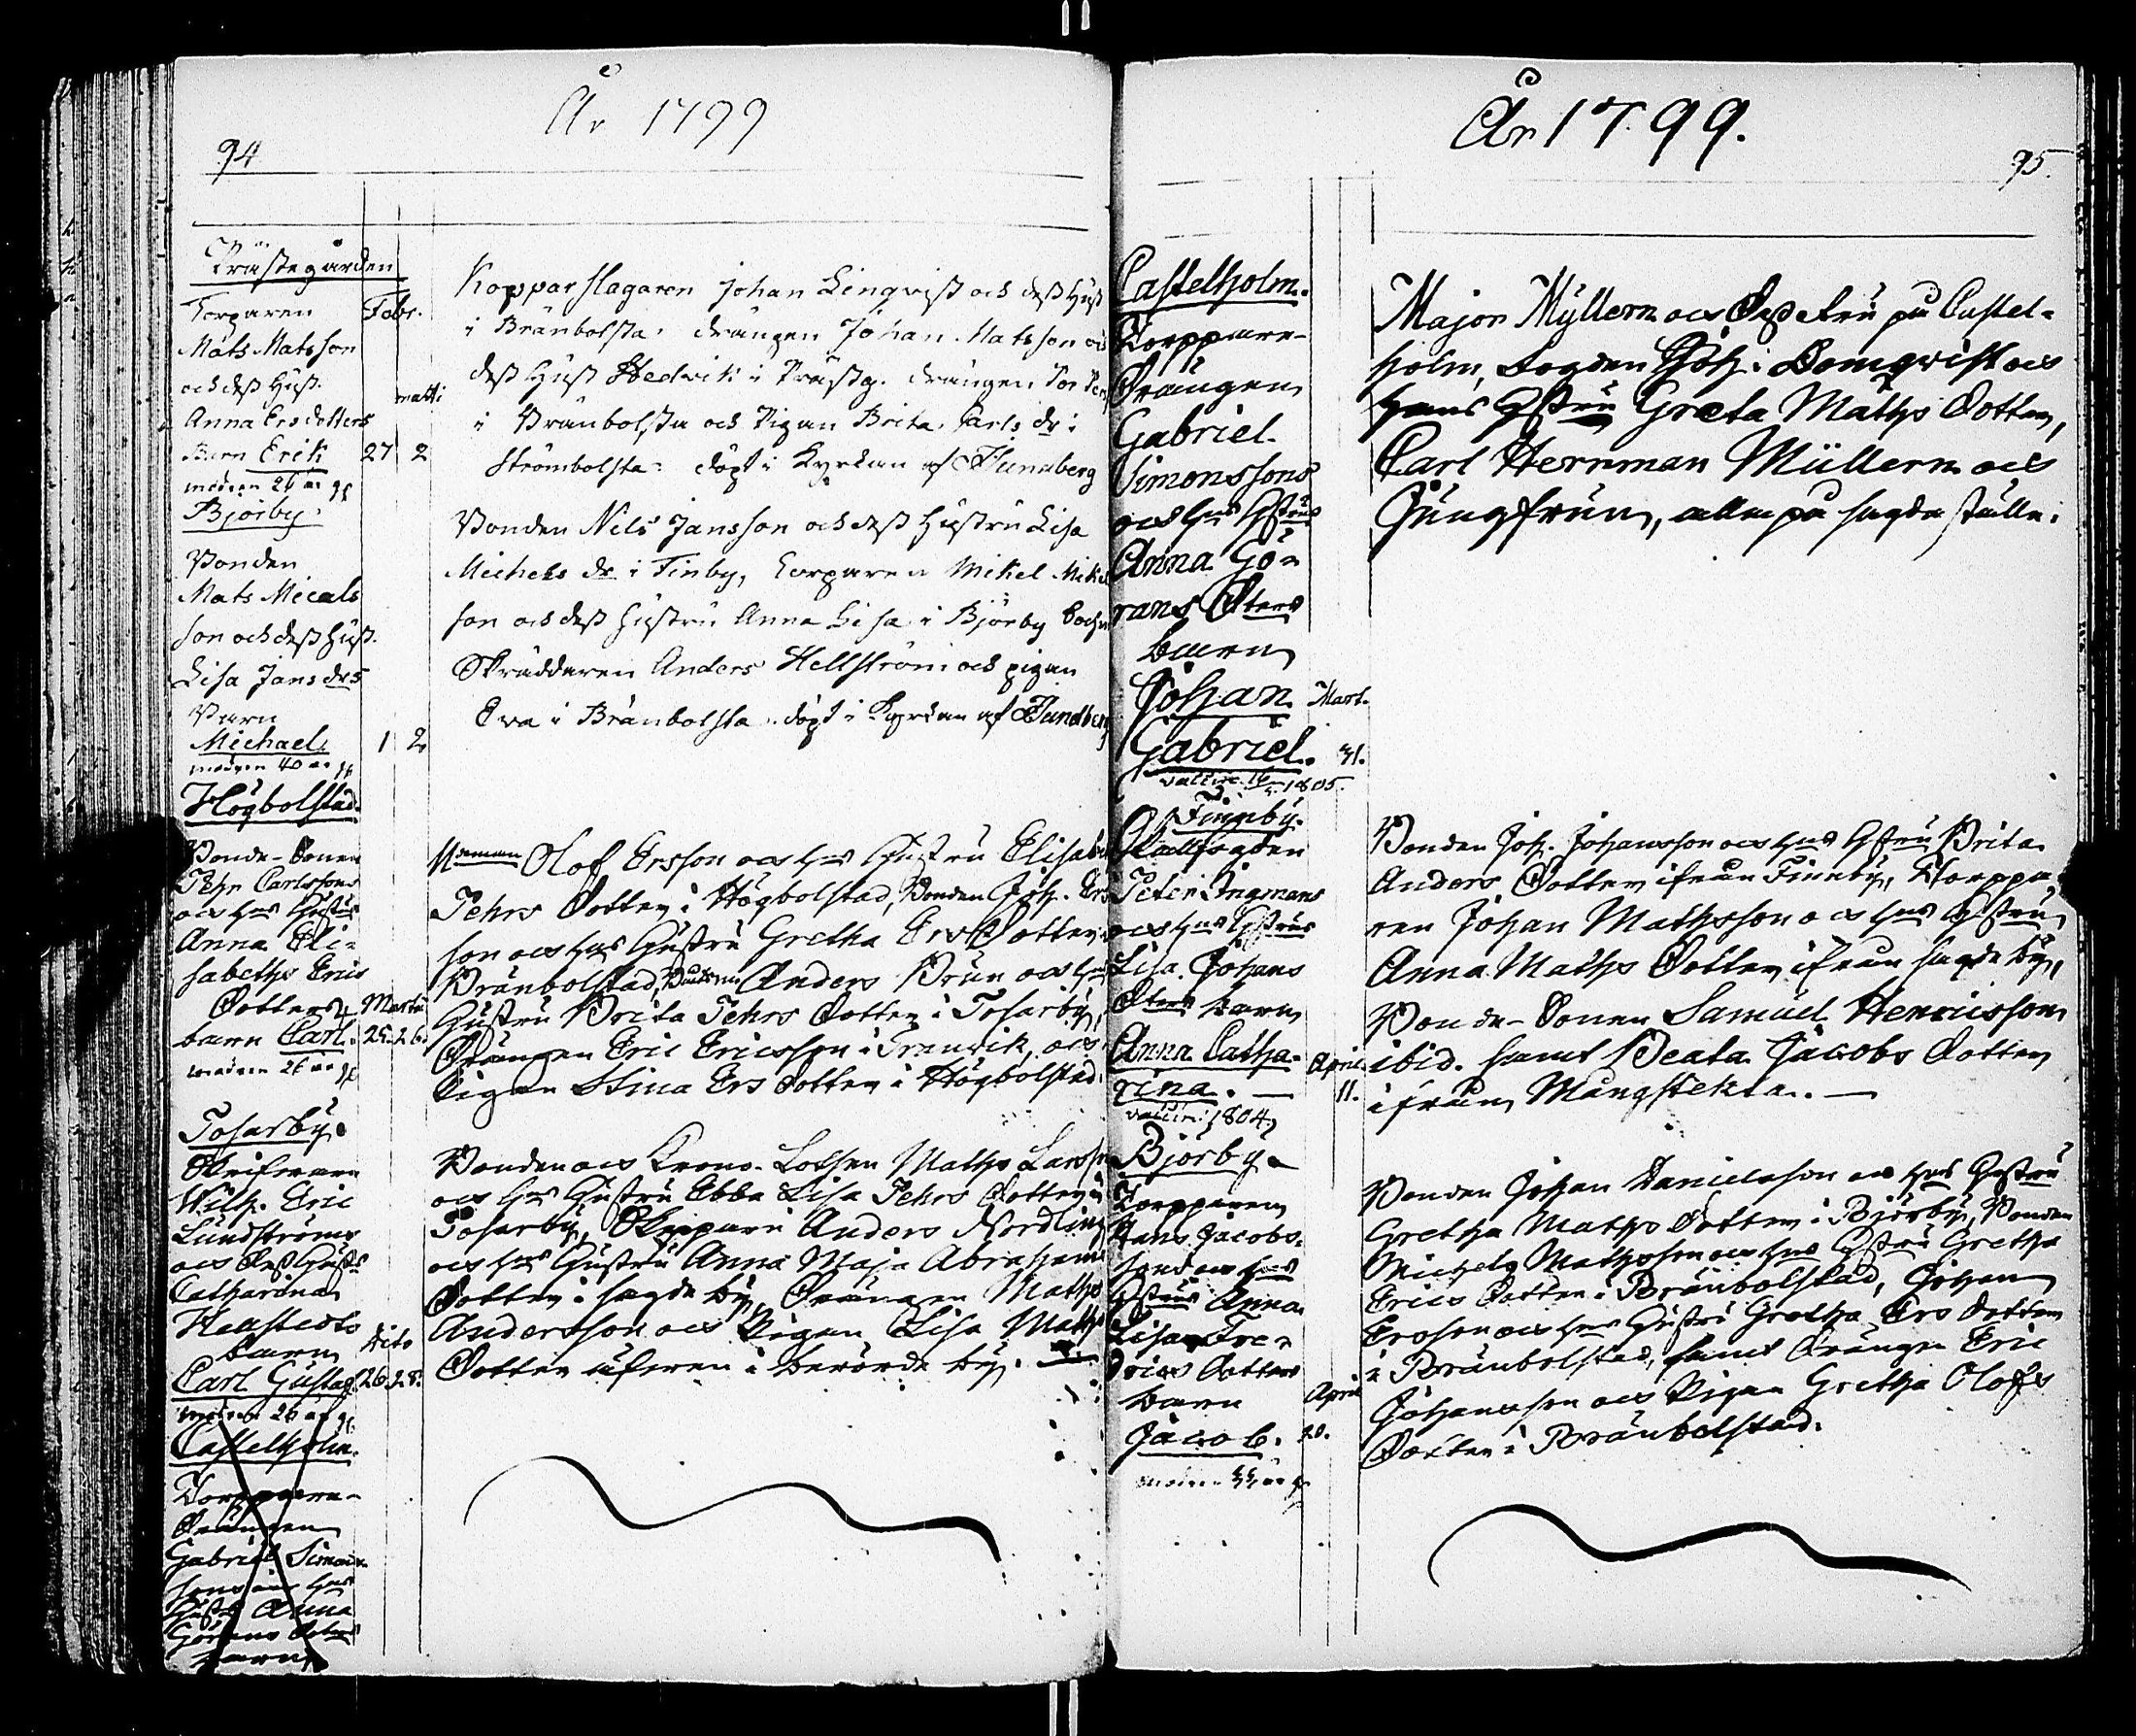 År 1799
94
Prästegården
Torparen Febr.
Mats Matsson
och dess Hust.
Anna Ersdotters
Barn Erik 27 2
modren 26 år gl
Björby
Bonden
Mats Micals
son och dess Hust.
Lisa Jans drs
Barn
Michael 1 2
modren 40 år gl
Högbolstad.
Bonde-Sonen
Pehr Carlssons
och hs Hustrus
Anna Eli-
sabeths Erics
Dotters Martii
barn Carl. 25. 26.
modren 26 år gl
Tosarby.
Skrifvaren
Wilh. Eric
Lundströms
och dess Hustrs
Catharina
Heastedts
barn Dito
Carl Gustaf. 26. 28.
modren 26 år gl.
Castelholm.
Torppare-
Drängen
Gabriel Simons-
sons och hans
Hustrs Anna
Görans Dotters
barn
Kopparslagaren Johan Linqvist och dess Hust
i Bränbolsta. drängen Johan Matsson och
dess Hust Hedvik i Prästg. drängen
i Bränbolsta och Pigan Brita Carls dr i
Strömbolsta. döpt i Kyrkan af Sundberg
Bonden Nils Jansson och dess Hustru Lisa
Michels dr i Finby, Torparen Mikel Mikels
son och dess Hustru Anna Lisa i Björby
Skräddaren Anders Hellström och pigan
Eva i Bränbolsta. döpt i Kyrkan af Sundberg
Olof Ersson och hs Hustru Elisabeth
Pehrs Dotter i Högbolstad, Bonden Joh. Ers
son och hs Hustru Gretha Ers Dotter i
Bränbolstad, Anders Brun och hs
Hustru Brita Pehrs Dotter i Tosarby,
Drängen Eric Ericsson i Grenvik, och
Pigan Stina Ers Dotter i Högbolstad.
Bonden och Krono-Lotsen Maths Larsson
och hs Hustru Ebba Lisa Pehrs Dotter i
Tosarby, Skeppare Anders Nordling
och hs Hustru Anna Maja Abrahams
Dotter i sagde by, Drängen Maths
Andersson och Pigan Lisa Maths
Dotter äfven i berörde by.
År 1799.
95.
Castelholm.
Torppare-
Drängen
Gabriel
Simonssons
och hs Hustrus
Anna Gö-
rans Dters
barn
Johan Mart.
Gabriel. 31.
1805.
Finnby.
Rättfogden
Peter Ingmans
och hs Hustrus
Lisa Johans
Dters barn
Anna Catha- April
rina. 11.
1804.
Björby.
Torpparen
Hans Jacobs-
sons och hans
Hustrus Anna
Lisa Fre-
drics Dotters
barn April
Jacob. 20.
modren 33 år gl
Major Müllern och Dess Fru på Castel-
holm, Fogden Joh. Blomqvist och
hans Hustru Greta Maths Dotter,
Carl Herrman Müllern och
Jungfrun, alla på sagde ställe.
Bonden Joh. Johansson och hs Hustru Brita
Anders Dotter ifrån Finnby, Torppa-
ren Johan Mathsson och hs Hustru
Anna Maths Dotter ifrån sagde by,
Bonde-Sonen Samuel Henricsson
ibid. samt Beata Jacobs Dotter
ifrån Mångstekta.
Bonden Johan Danielsson och hs Hustru
Gretha Maths Dotter i Björby, Bonden
Michels Mathsson och hs Hustru Gretha
Erics Dotter i Bränbolstad, Johan
Ersson och hs Hustru Gretha Ers Dotter
i Bränbolstad, samt Drängen Eric
Johansson och Pigan Gretha Olofs
Dotter i Bränbolstad.